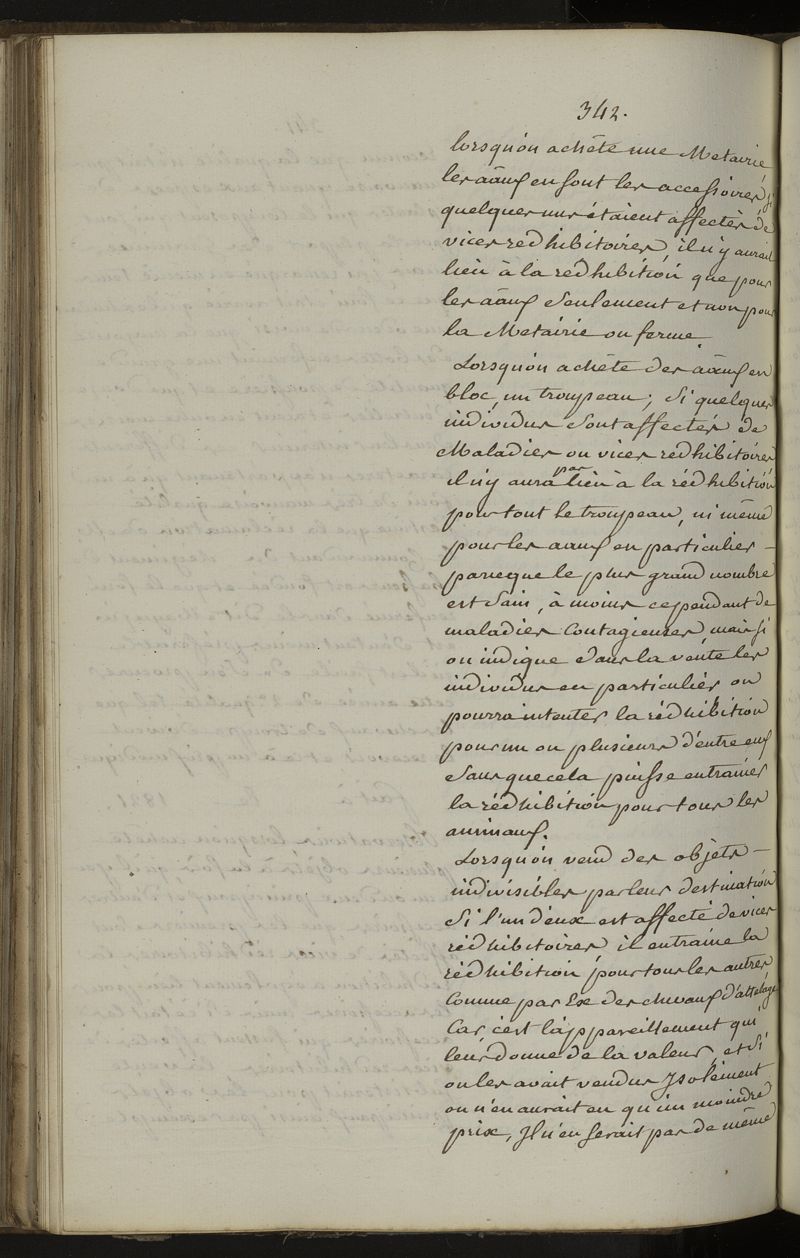 342.
lorsqu'on achète une Metairie
les aãux en sont les accessoires, si
quelques uns étaient affectés de
vices redhibitoires, il n'y aurait
lieu à la redhibition que pour
les aãux seulement et non pour
la Metairie ou ferme.
Lorsqu'on achète des aãux en
bloc, un troupeau; si quelques
individus sont affectés de
Maladies ou vices redhibitoires
il n'y aura pas lieu à la rédhibition
pour tout le troupeau, ni même
pour les aaux en particulier -
parceque le plus grand nombre
est sain, à moins cependant de
maladies contagieuses, mais si
on indique dans la vente les
individus en particulier on
pourra intenter la rédhibition
pour un ou plusieurs d'entre eux
sans que cela puisse entrainer
la rédhibition pour tous les
animaux.
Lorsqu'on vend des objets -
indivisibles par leur destination
si l'un d'eux est affecté de vices
rédhibitoires il entraine la
rédhibition pour tous les autres
Comme par Ex des chevaux d'attelage
Car c'est l'appareillement qui
leur donne de la valeur, et si
on les avait vendus Isolément
on n'en aurait eu qu'un moindre
prix, Il n'en serait pas de même